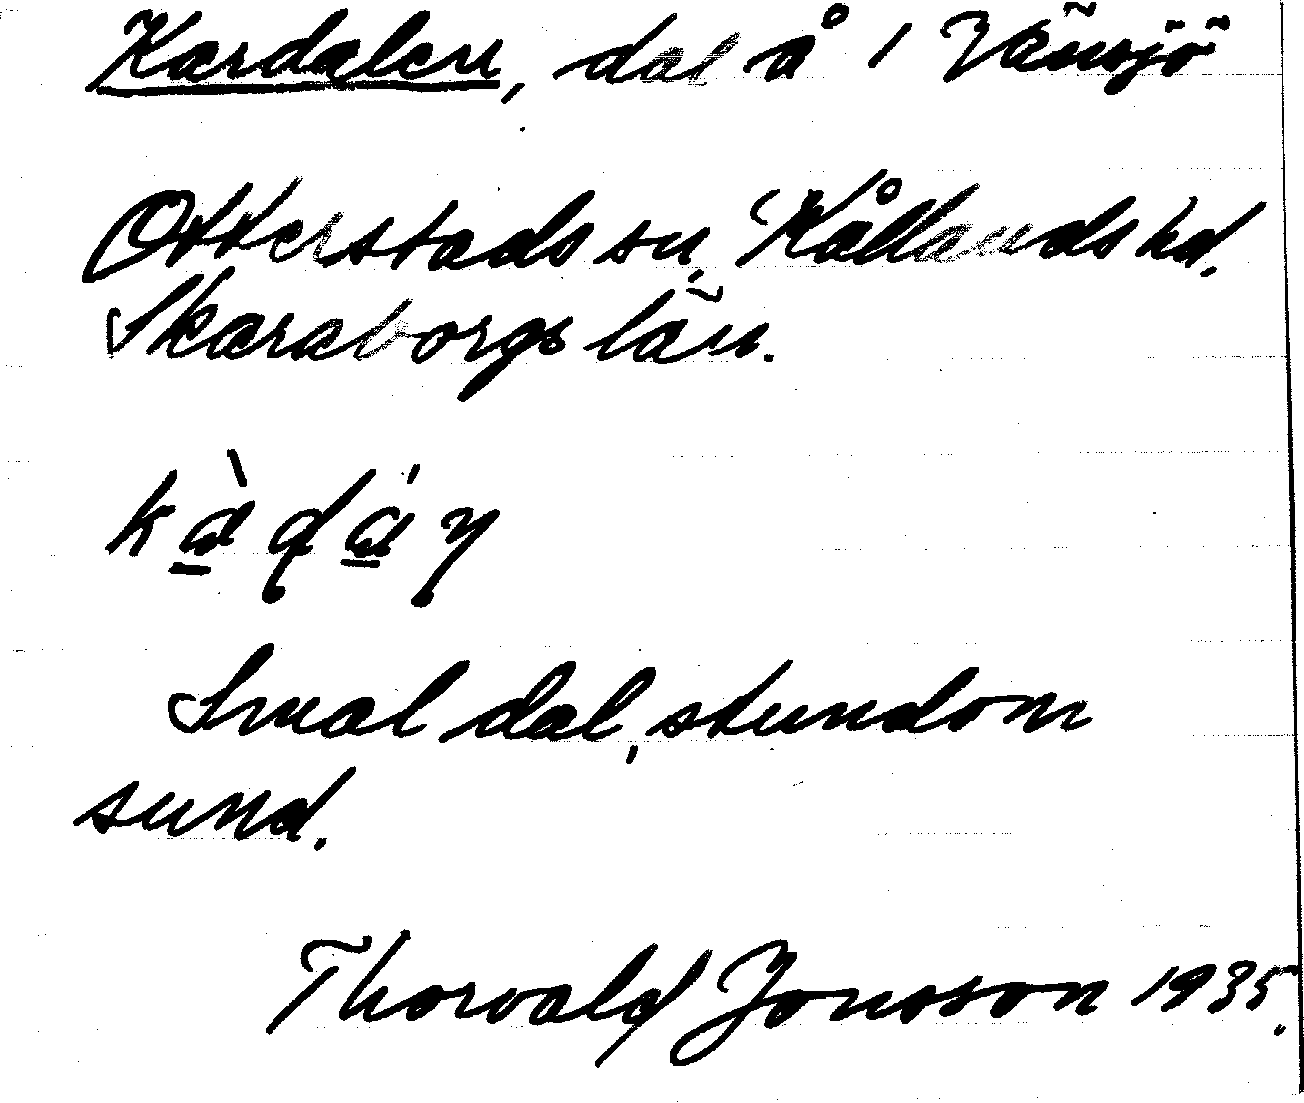 Kardalen, dal å 1 Vänsjö
Otterstads sn, Kållands hd.
Skaraborgs län.
kàdáy
Smal dal, stundom
sund.
Thorvald Jonsson 1935.